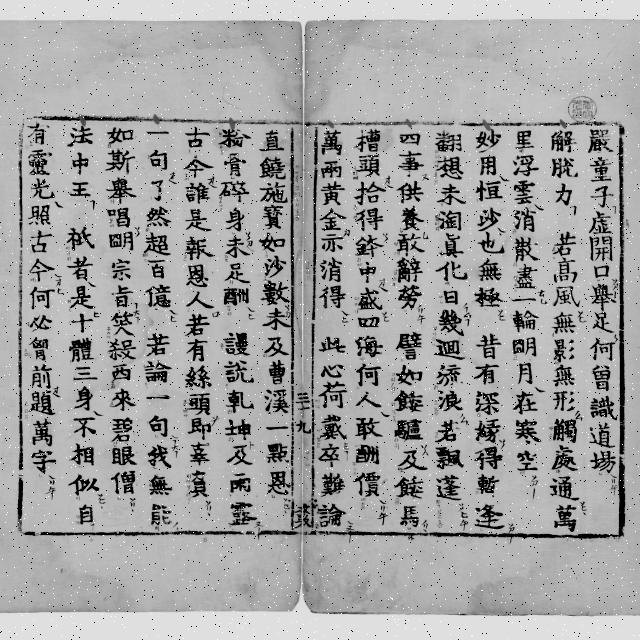 嚴童子虛開口舉足何曾識道場
解脫力　若高風無影無形觸處通萬
里浮雲消散盡一輪明月在寒空
妙用恒沙也無極　昔有深嬌得暫逢
翻想未淘眞化日幾迴流浪若飄蓬
四事供養敢辭勞　譬如餧驢及餧馬
槽頭拾得鉢中盛四海何人敢酬價
萬兩黃金亦消得　此心荷戴卒難論
直饒施寶如沙數未及曹溪一點恩
三九
粉骨碎身未足酬　謾說乹坤及雨露
古今誰是報恩人若有絲頭即辜負
一句了然超百億　若論一句我無能
如斯舉唱明宗旨笑殺西來碧眼僧
法中王　祇者是十體三身不相似自
有靈光照古今何必胷前題萬字